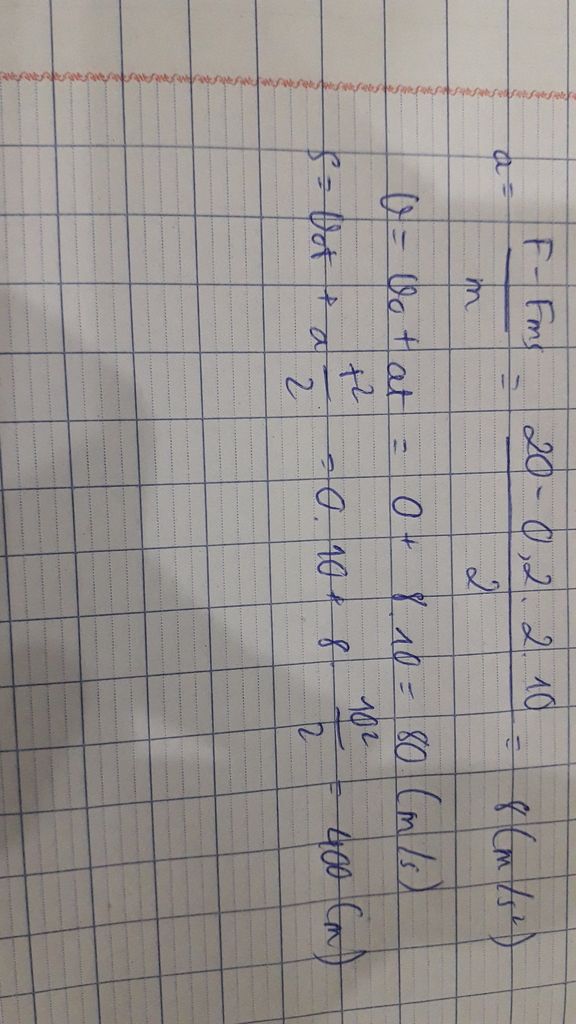 a = F - Fms / m = 20 - 0,2.2.10 / 2 = 8 (m/s²)
v = v₀ + at = 0 + 8.10 = 80 (m/s)
s = v₀t + a t²/2 = 0.10 + 8 10²/2 = 400 (m)